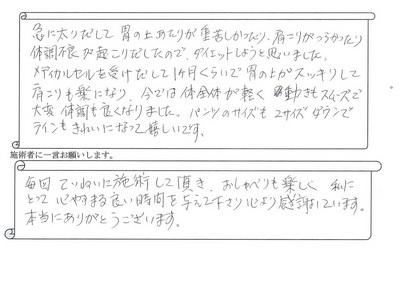 急に太りだして 胃の上あたりが重苦しかったり、肩こりがつらかったり
体調不良が起こりだしたので、ダイエットしようと思いました。
メディカルセルを受けだして1ヶ月くらいで胃の上がスッキリして
肩こりも楽になり、今では体全体が軽く 動きもスムーズで
大変 体調も良くなりました。パンツのサイズも2サイズダウンで
ラインもきれいになって嬉しいです。
施術者に一言お願いします。
毎回 ていねいに施術して頂き、おしゃべりも楽しく 私に
とって 心やすまる良い時間を与えて下さり心より感謝しています。
本当にありがとうございます。